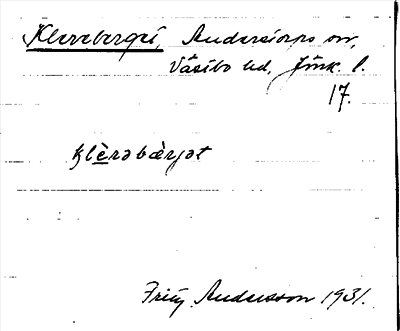 Klereberget, Anderstorps sn,
Västbo hd, Jönk. l.
17.
klèrəbærjət
Fritz Andersson 1931.